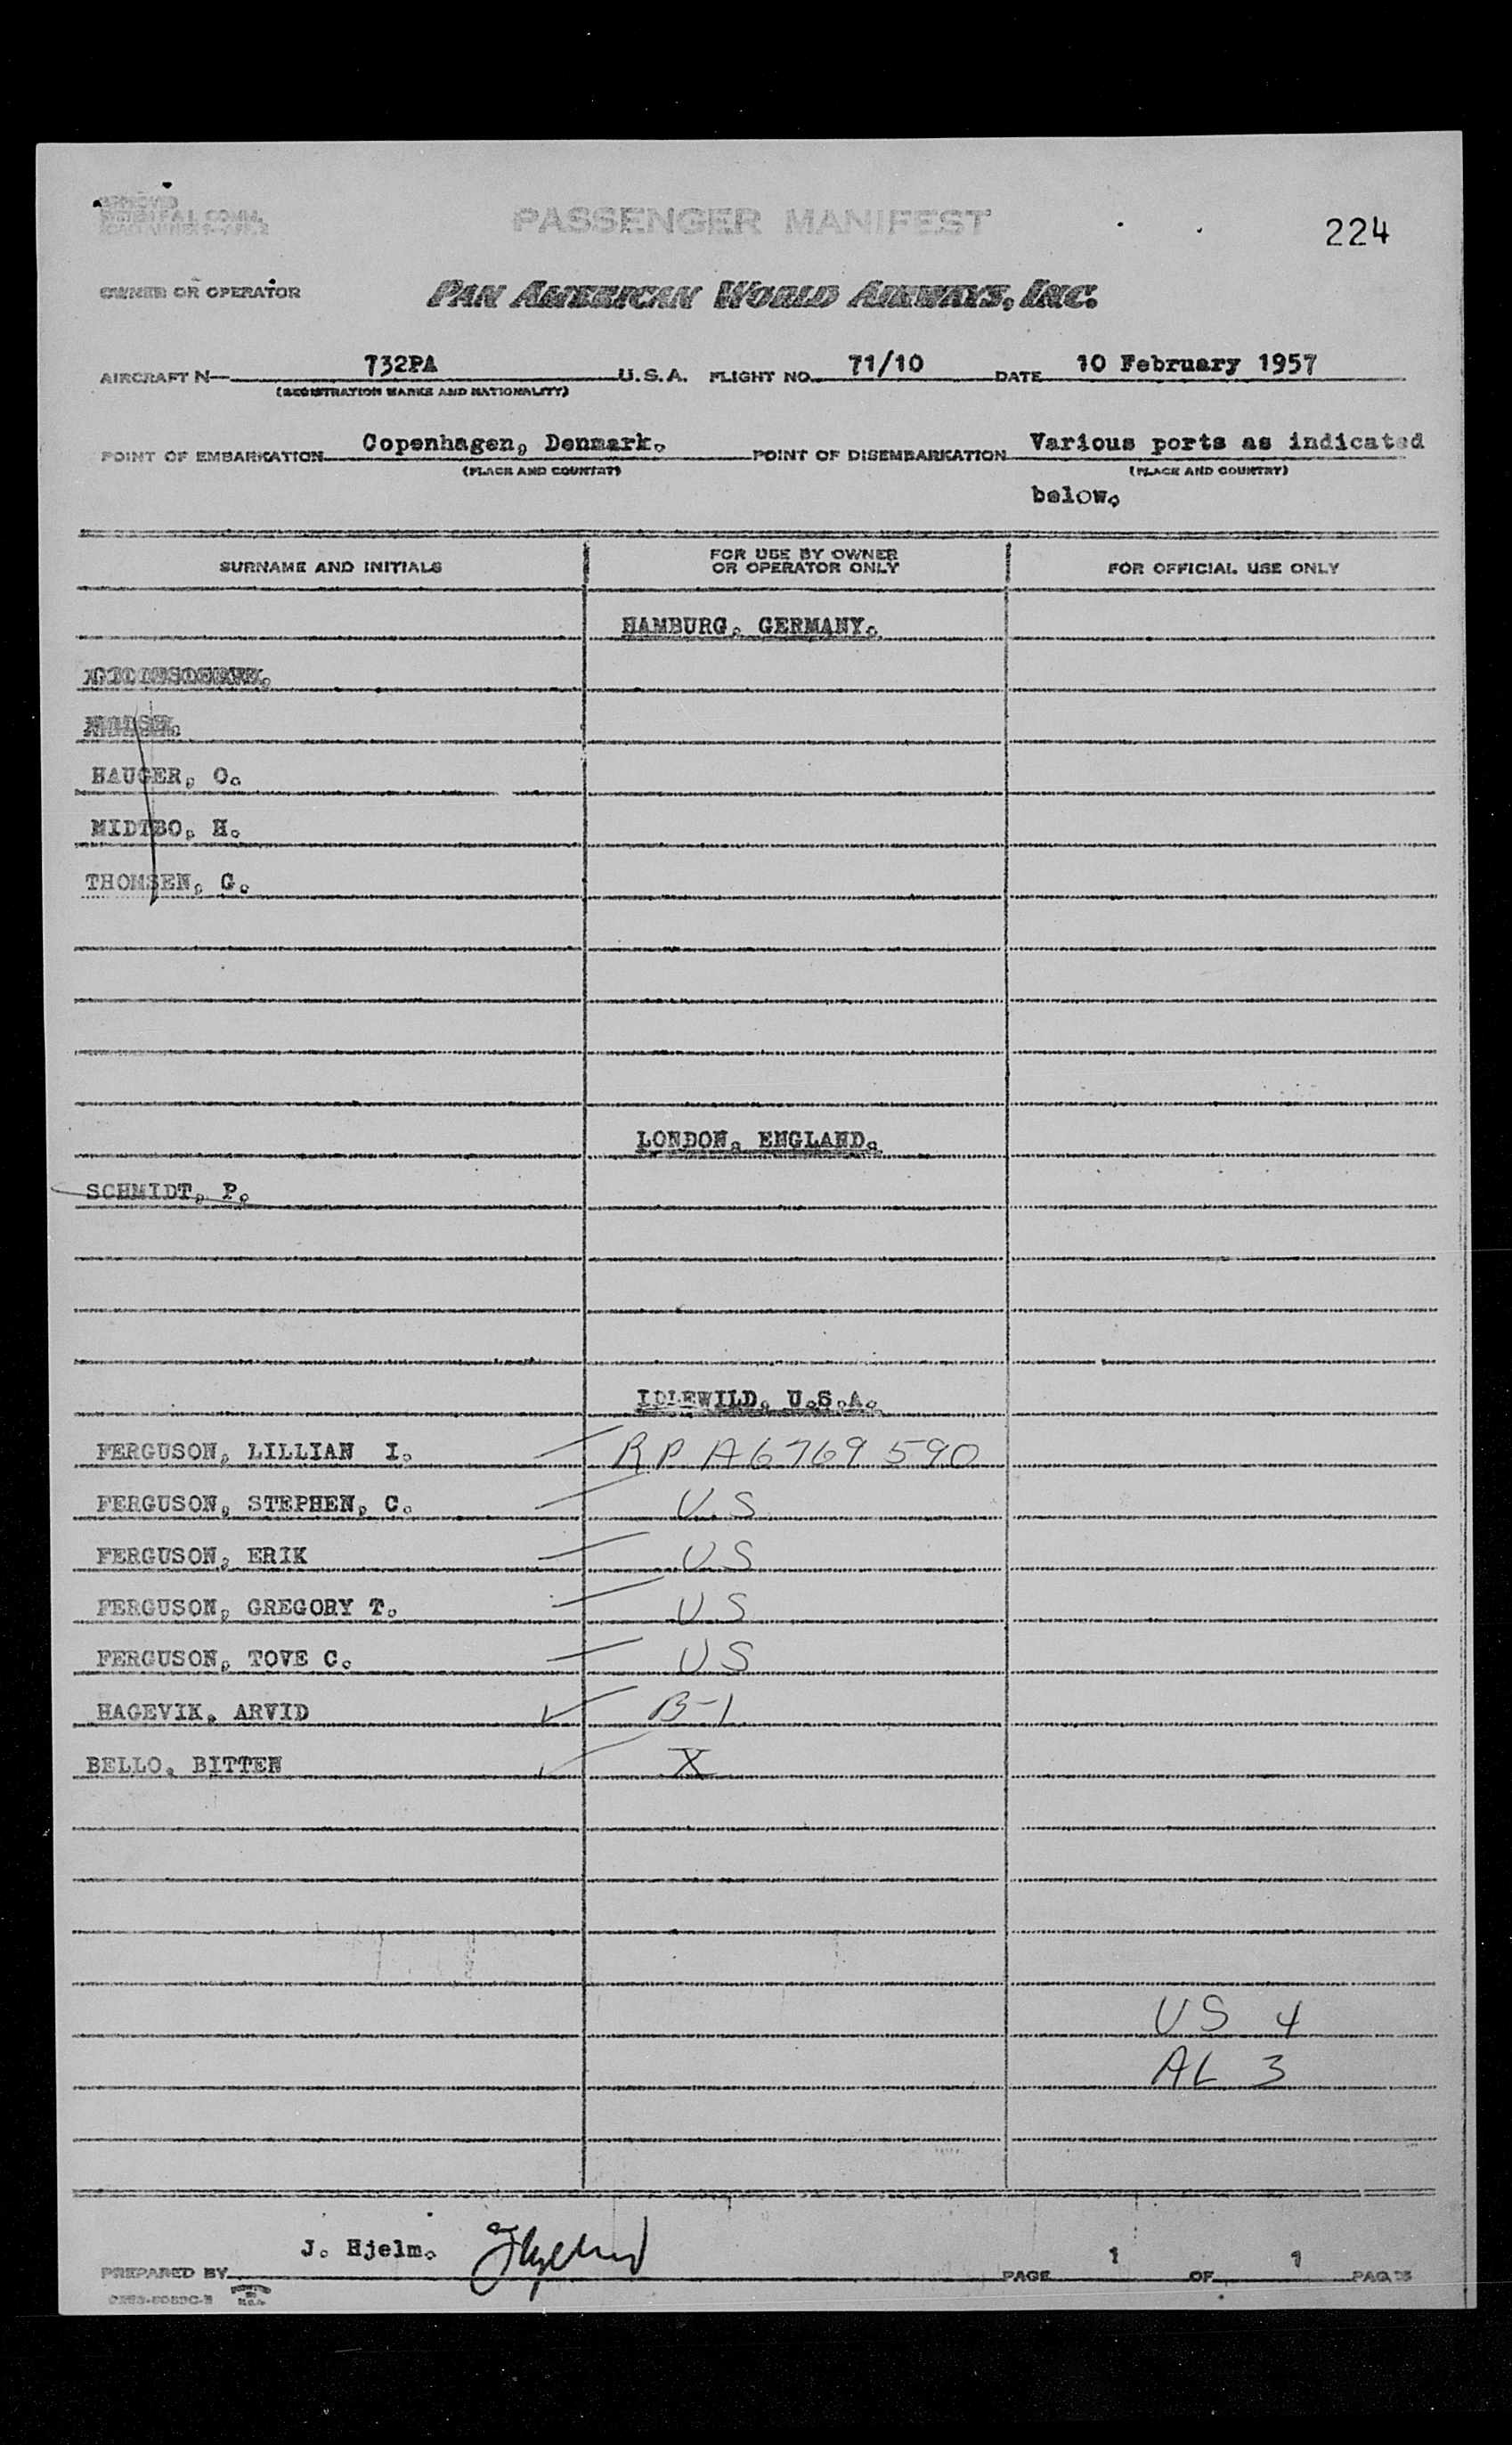 PASSENGER MANIFEST
224
OWNER OR OPERATOR
PAN AMERICAN WORLD AIRWAYS, INC.
AIRCRAFT N— 732PA U.S.A. FLIGHT NO. 71/10 DATE 10 February 1957
(REGISTRATION MARKS AND NATIONALITY)
POINT OF EMBARKATION Copenhagen, Denmark. POINT OF DISEMBARKATION Various ports as indicated
(PLACE AND COUNTRY) (PLACE AND COUNTRY)
below.
SURNAME AND INITIALS
FOR USE BY OWNER
OR OPERATOR ONLY
FOR OFFICIAL USE ONLY
HAMBURG, GERMANY.
HAUGER, O.
MIDTBO, H.
THOMSEN, G.
LONDON, ENGLAND.
SCHMIDT, P.
IDLEWILD, U.S.A.
FERGUSON, LILLIAN I. RP A6769590
FERGUSON, STEPHEN, C. U.S
FERGUSON, ERIK US
FERGUSON, GREGORY T. US
FERGUSON, TOVE C. US
HAGEVIK, ARVID B-1
BELLO, BITTEN X
US 4
AL 3
PREPARED BY J. Hjelm. PAGE 1 OF 1 PAGES